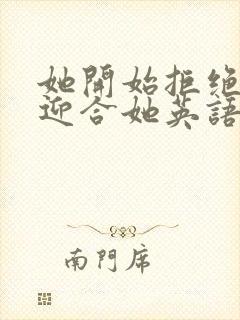 她開始拒绝
迎合她英語
南門席